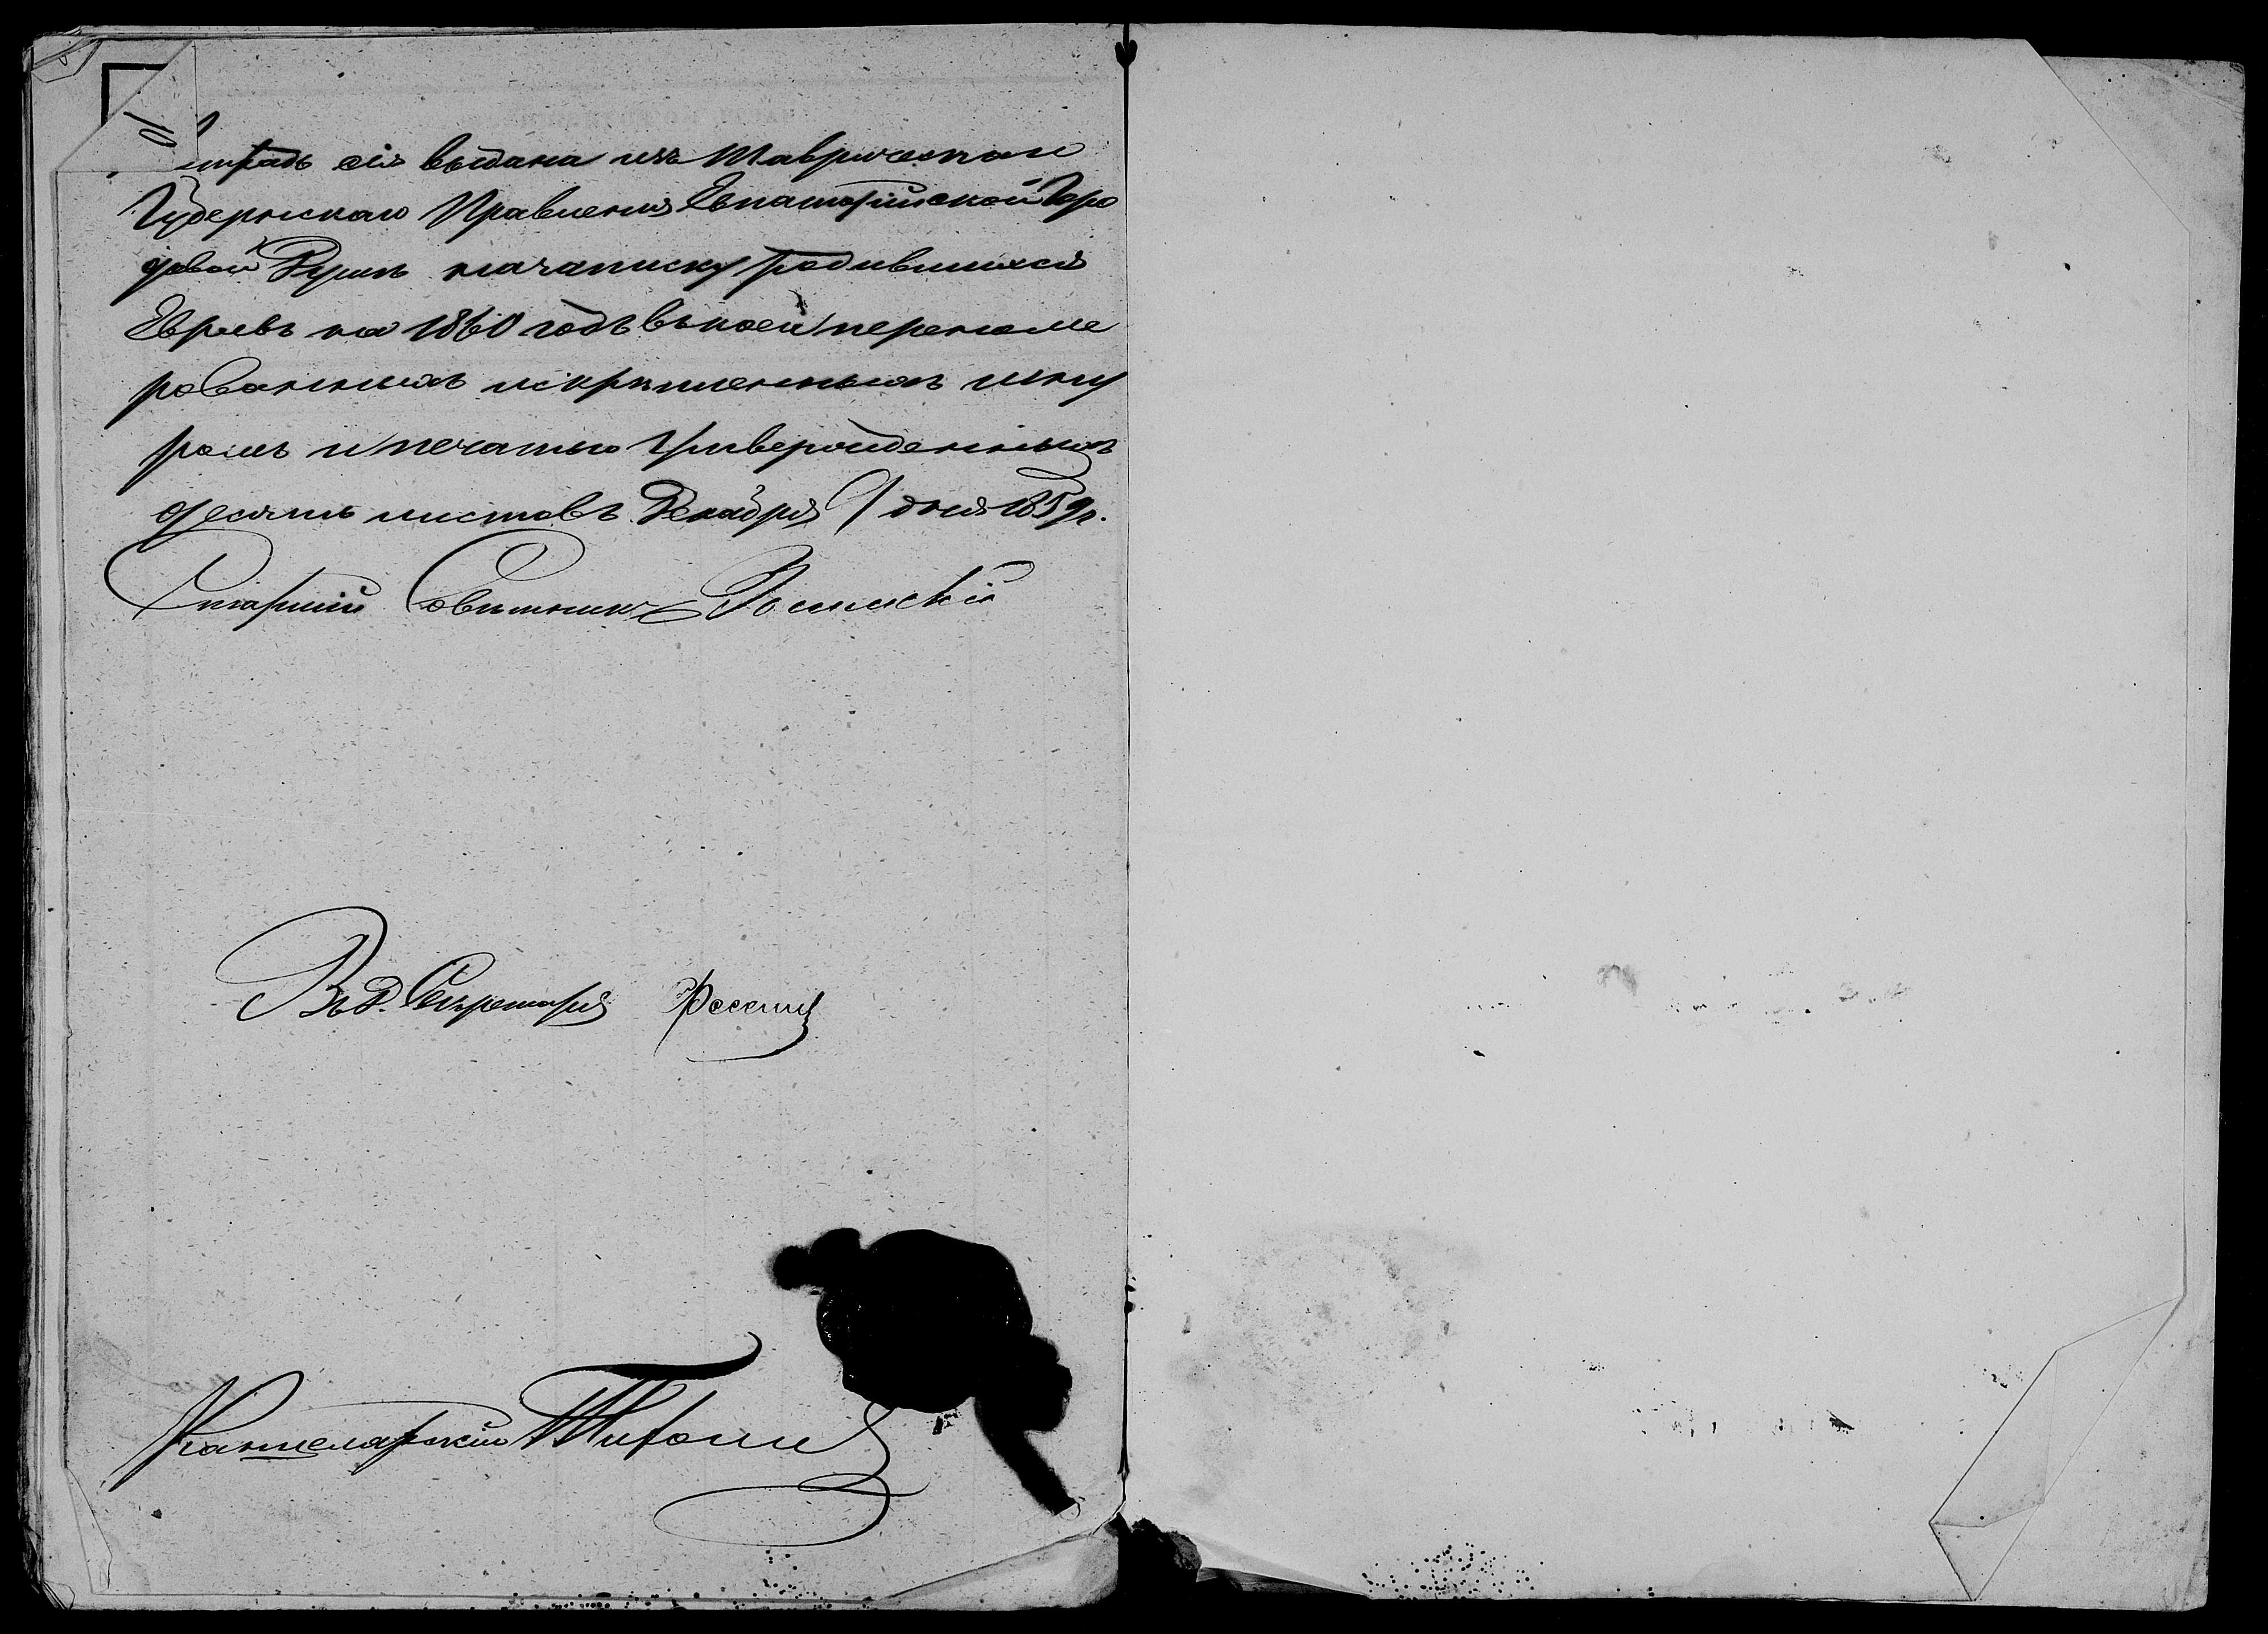 тетрадь сія выдана изъ Таврическаго
Губернскаго Правленія Евпаторійской Горо
довой Думѣ на записку родившихся
Евреевъ на 1860 годъ въ коей перенуме
рованныхъ и скрѣпленныхъ шну
ромъ и печатью утвержденныхъ
десять листовъ. Декабря дня 1859 г.
Старшій Совѣтникъ
Въ Д. Секретаря
Канцелярскій